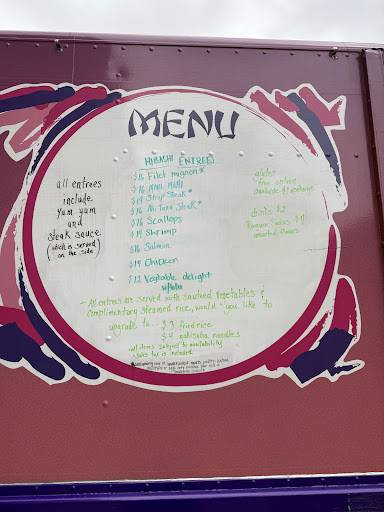 MENU
HIBACHI ENTREES
$16 Filet mignon*
$16 Mahi Mahi
$14 Strip Steak*
$16 Ahi Tuna Steak*
$16 Scallops
$14 Shrimp
$16 Salmon
$14 Chicken
$12 Vegtable delight
w/tofu
all entrees
include
yum yum
and
steak sauce
(which is served)
on the side
gluten
free option
available if
drinks $2
Ramune Sodas $4
assorted flavors
- All entrees are served with sauteed vegetables &
complimentary steamed rice, would you like to
upgrade to... $3 fried rice
$4 yakisoba noodles
-all items subject to availability
-sales tax is included
*consuming raw or undercooked meats, poultry, seafood,